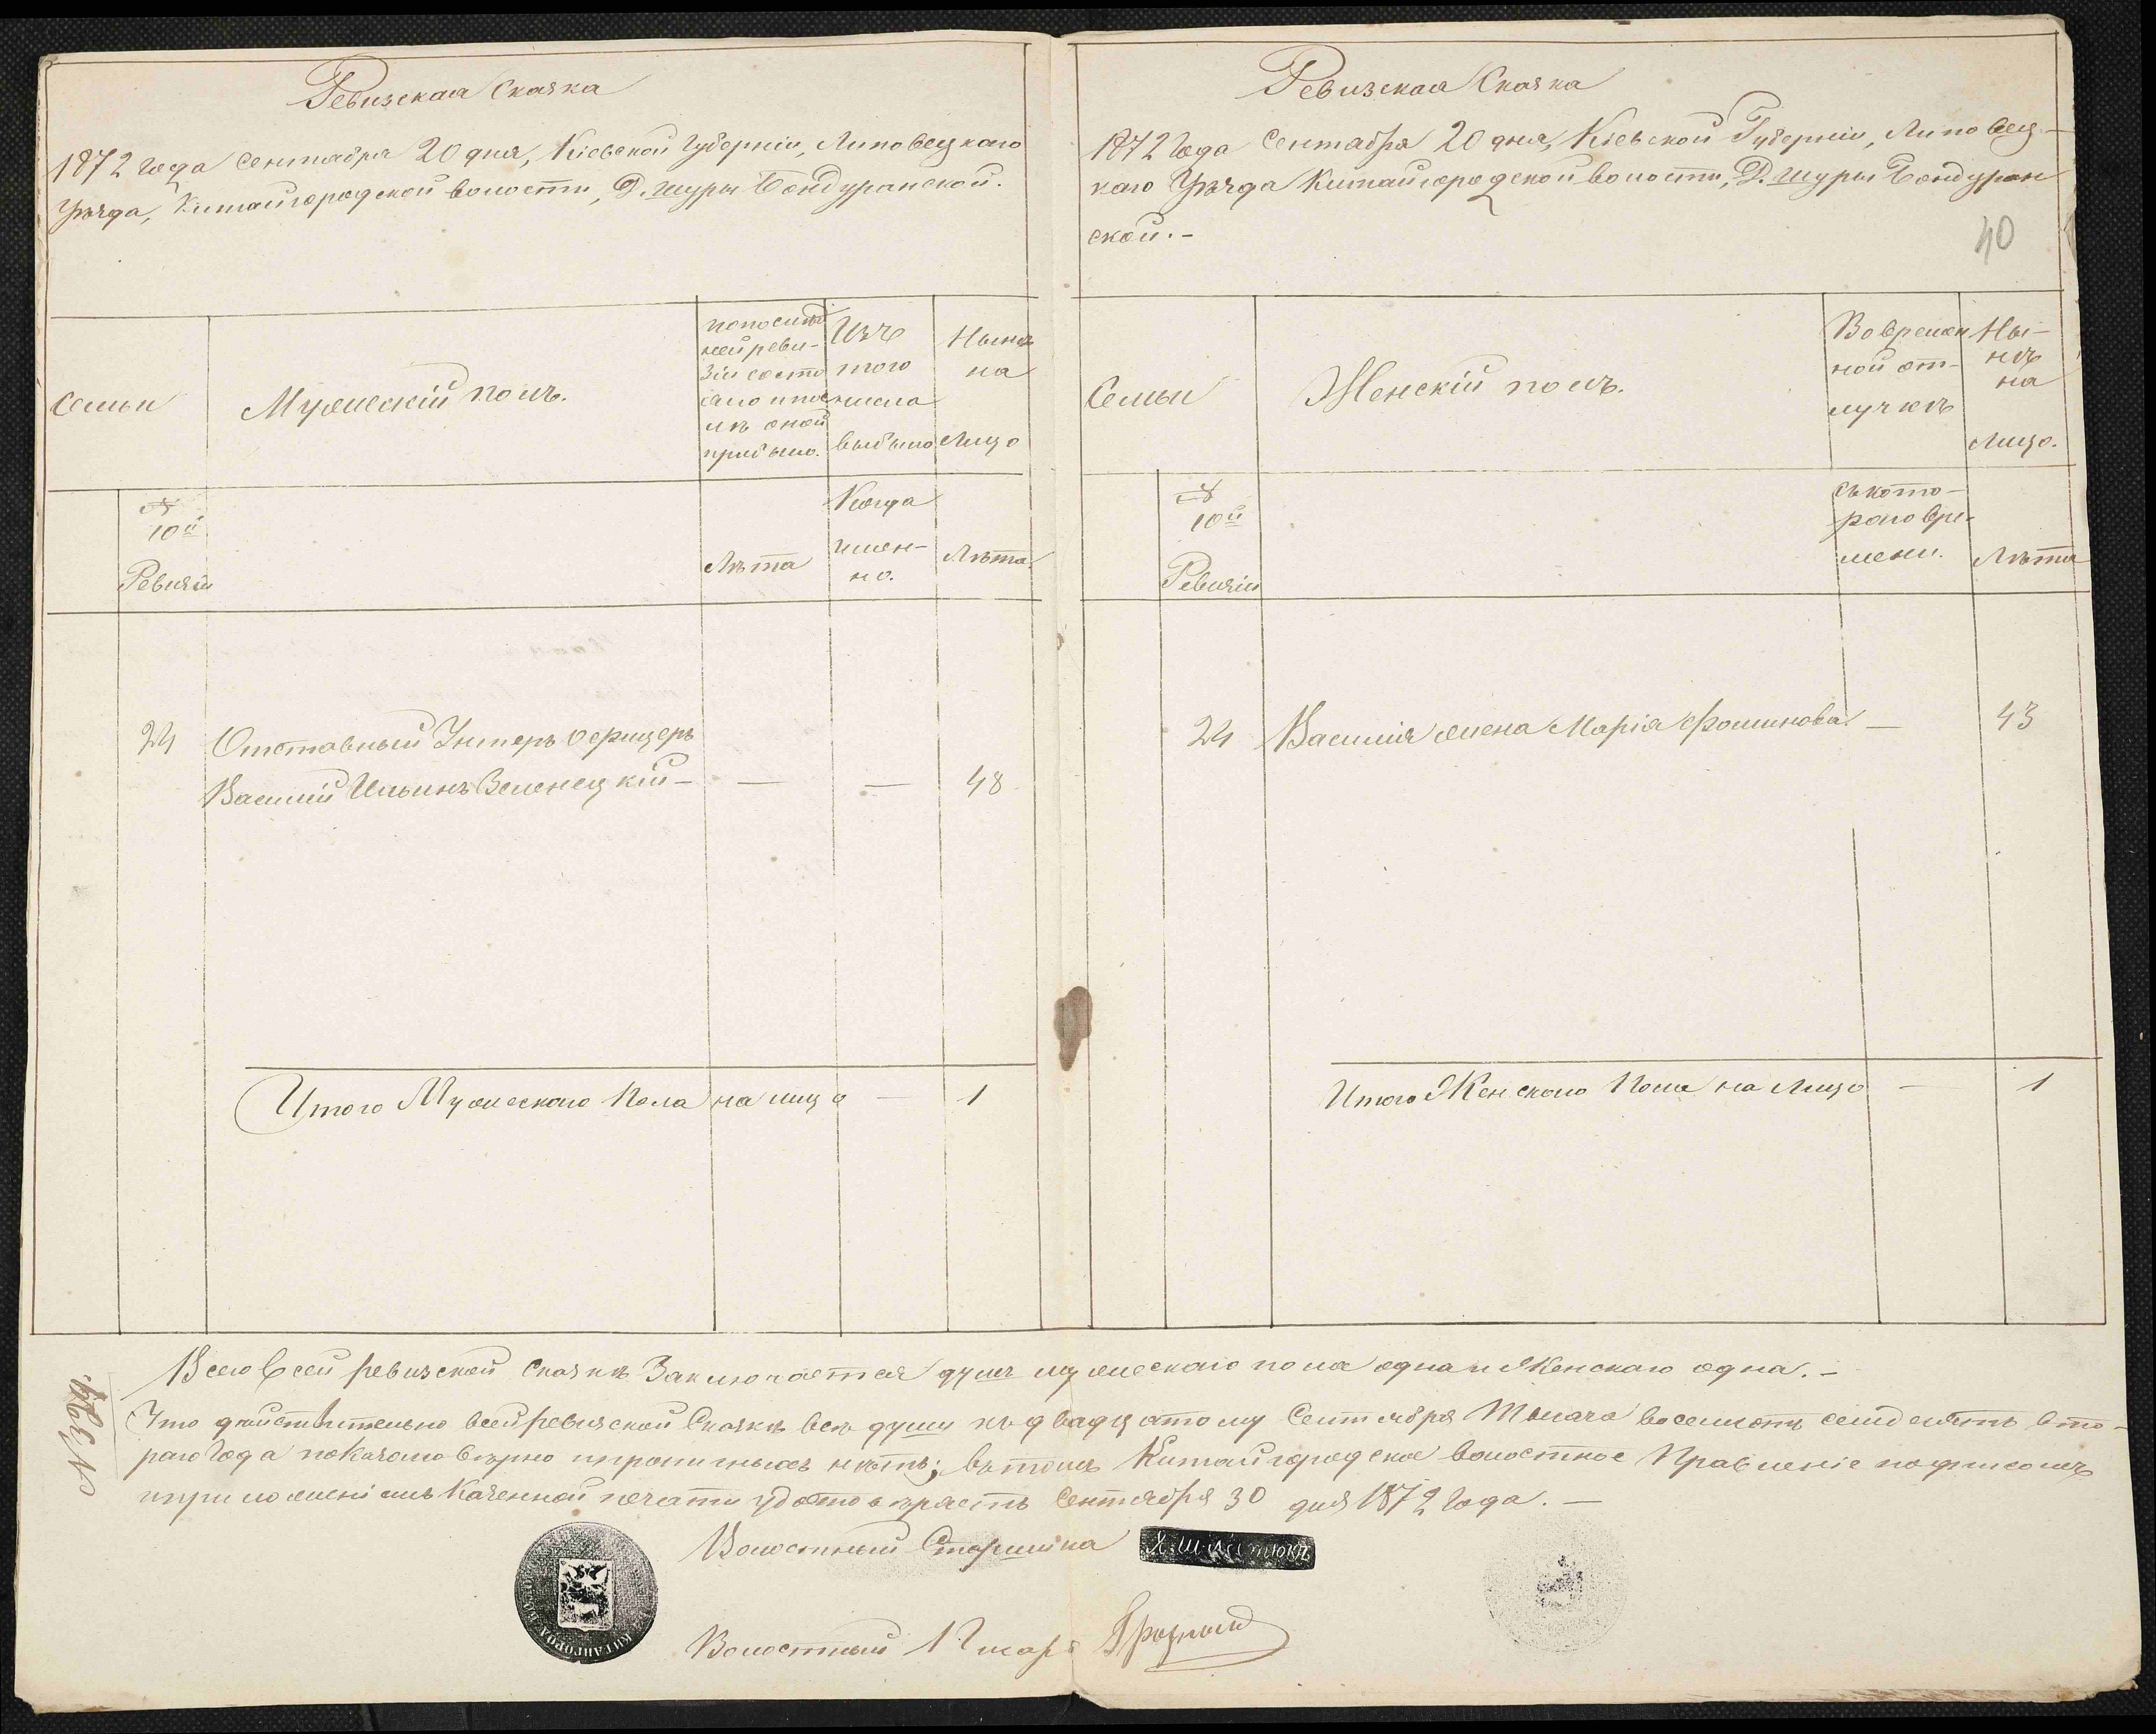 Ревизская Сказка
1872 года Сентября 20 дня, Кіевской Губерніи, Липовецкаго
Уѣзда, Китайгородской волости, Д. Шуры Бондуранской.
Семьи
Мужескій полъ.
По послѣд
ней реви-
зіи состо
яло и пос
лѣ оной
прибыло.
Изъ
того
числа
выбыло
Нынѣ
на
Лицо
№
10й
Ревизіи
Лѣта
Когда
имен-
но.
Лѣта.
24 Отставный Унтеръ Офицеръ
Василій Ильинъ Зеленецкій — — — 48
Итого Мужескаго Пола на лицо — 1
Ревизская Сказка
1872 Года Сентября 20 дня, Кіевской Губерніи, Липовец-
каго Уѣзда Китайгородской волости, Д. Шуры Бондуран
ской. —
40
Семьи
Женскій полъ.
Во времен
ной от-
лучкѣ
Ны-
нѣ
на
Лицо.
№
10й
Ревизіи
Съ кото-
раго вре-
мени.
Лѣта
24 Василія жена Марія Фоминова — 43
Итого Женскаго Пола на Лицо — 1
Всего въ сей ревизской сказкѣ Заключается душъ мужескаго пола одна и Женскаго одна. —
Что дѣйствительно всей ревизской Сказкѣ всѣ души къ двадцатому Сентября Тысяча восемсотъ семдесятъ вто-
раго Года показано вѣрно и пропищныхъ нѣтъ; въ томъ Китайгородское волостное Правленіе подписомъ
и приложеніемъ Казенной печати удостовѣряетъ Сентября 30 дня 1872 Года. —
Волостный Старшина
Волостный Писарь